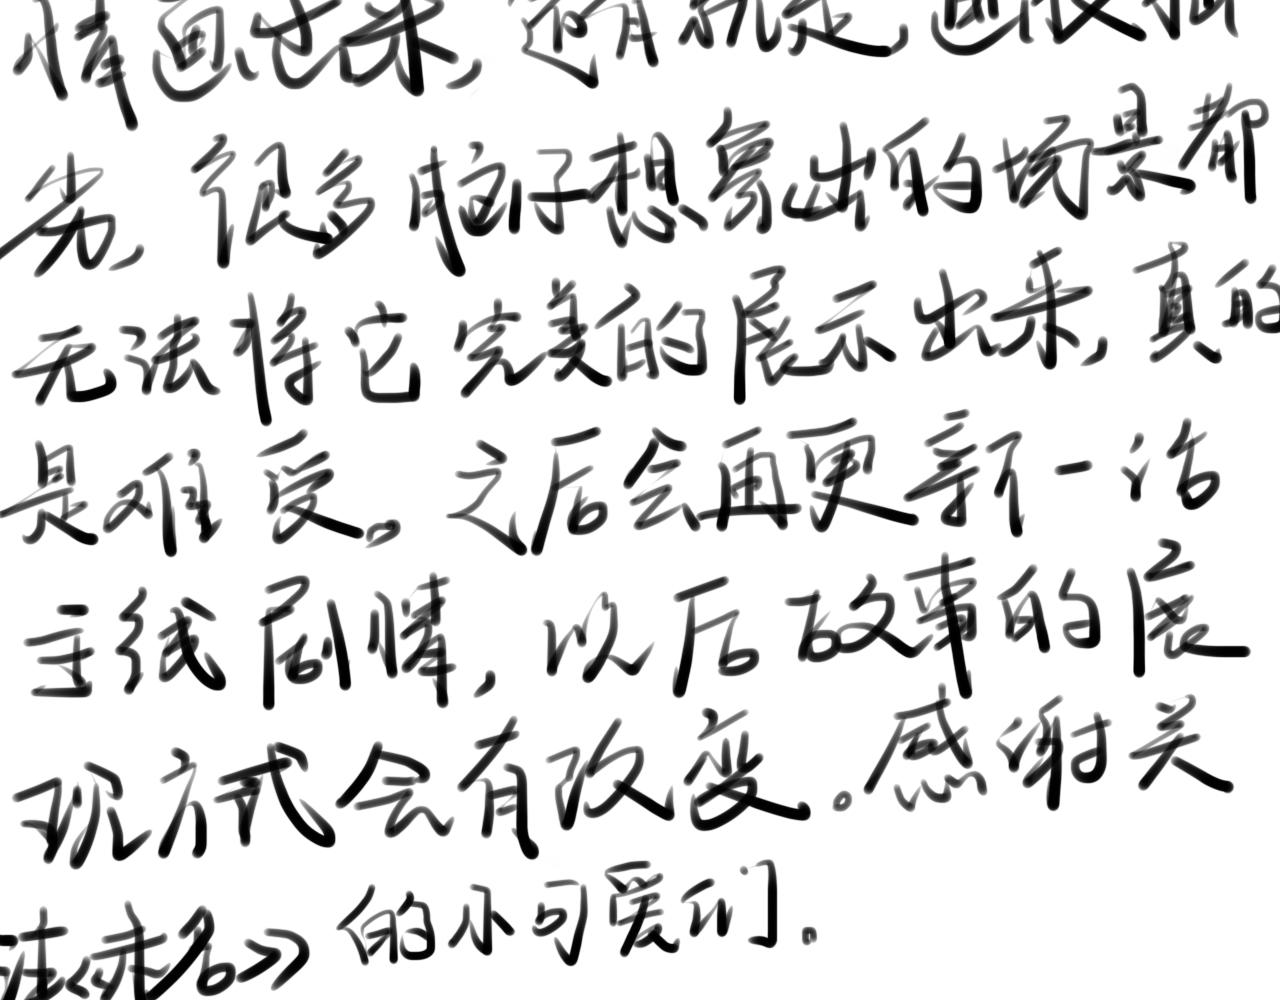 情画出来,还有就是,画技拙
劣,很多脑子想象出的场景都
无法将它完美的展示出来,真的
是难受。之后会再更新一话
主线剧情,以后故事的展
现方式会有改变。感谢关
注《未名》的小可爱们。